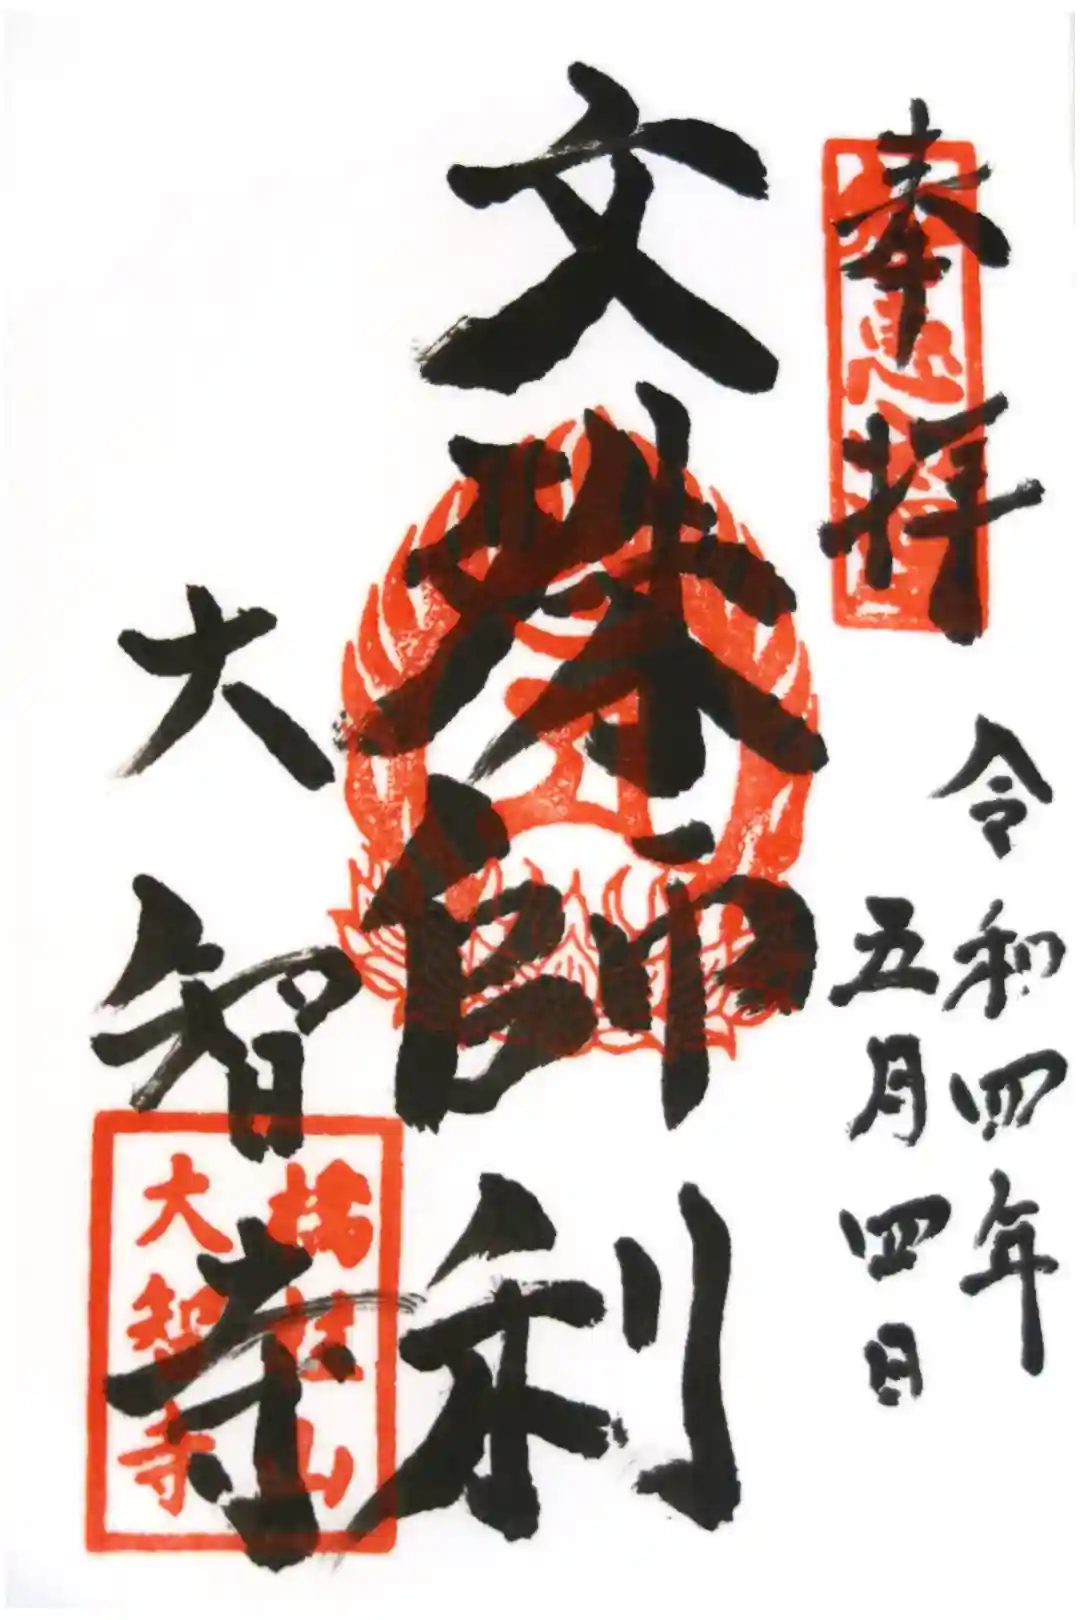 奉拝
令和四年
五月四日
文殊師利
大智寺
山
大智寺